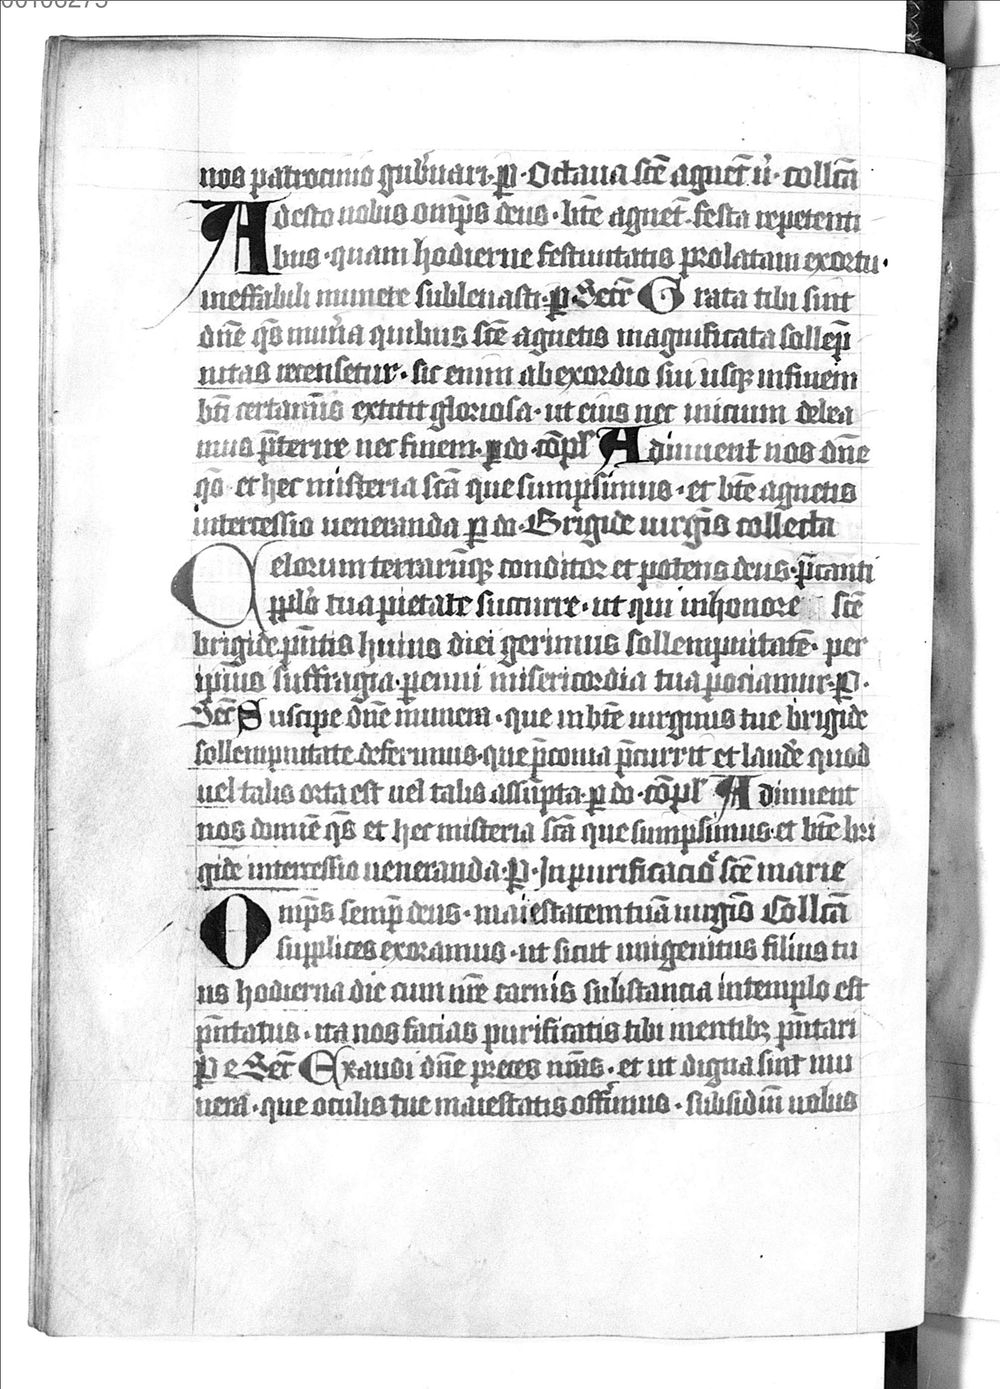 nos patrocinio gub̉nari. ꝑ. Octaua sc̄e agnet̄ v̉. coll̄ca
Adesto nobis omp̄s deus. bt̄e agnet̄. festa repetenti
bus. quam hodierne festiuitatis prolatam exortu.
ineffabili munere subleuasti. ꝑ. Secr̄ Grata tibi sint
dn̄e qs̄ mun̉a quibus sc̄e agnetis magnificata sollēp
nitas recensetur. sic enim ab exordio sui usqꝫ in finem
bt̄i certaminis extitit gloriosa. ut eius nec inicium delea
mus p̄terire nec finem. ꝑ do. cōpl̄ Adiuuent nos dn̄e
qs̄ et hec misteria scā que sumpsimus. et bt̄e agnetis
intercessio ueneranda ꝑ do. Brigide uirgis̄ collecta
Celorum terrarūqꝫ conditor et potens deus. p̄canti
pplo̅ tua pietate succurre. ut qui in honore sc̄e
brigide. pn̄tis huius diei gerimus sollempnitatē. per
ipius suffragia. penni misericordia tua pociamur. ꝑ.
Secr̄ Suscipe dn̄e munera. que in bt̄e uirginis tue brigide
sollempnitate deferimus. que p̄conia p̄currit et laudē quod
uel talis orta est uel talis assūpta. ꝑ do. cōpl̄ Adiuuent
nos domiē qs̄ et hec misteria scā que sumpsimus. et bt̄e bri
gide intercessio ueneranda. ꝑ. In purificaciō sc̄e marie
Omp̄s semp̄ deus. maiestatem tuā uirgis̄ Coll̄ca
supplices exoramus. ut sicut unigenitus filius tu
us hodierna die cum nr̄e carnis substancia in templo est
pn̄tatus. ita nos facias purificatis tibi mentibꝫ pn̄tari
ꝑ e Secr̄ Exaudi dn̄e preces nr̄as. et ut digna sint mu
nera. que oculis tue maiestatis offerimus. subsidiū nobis